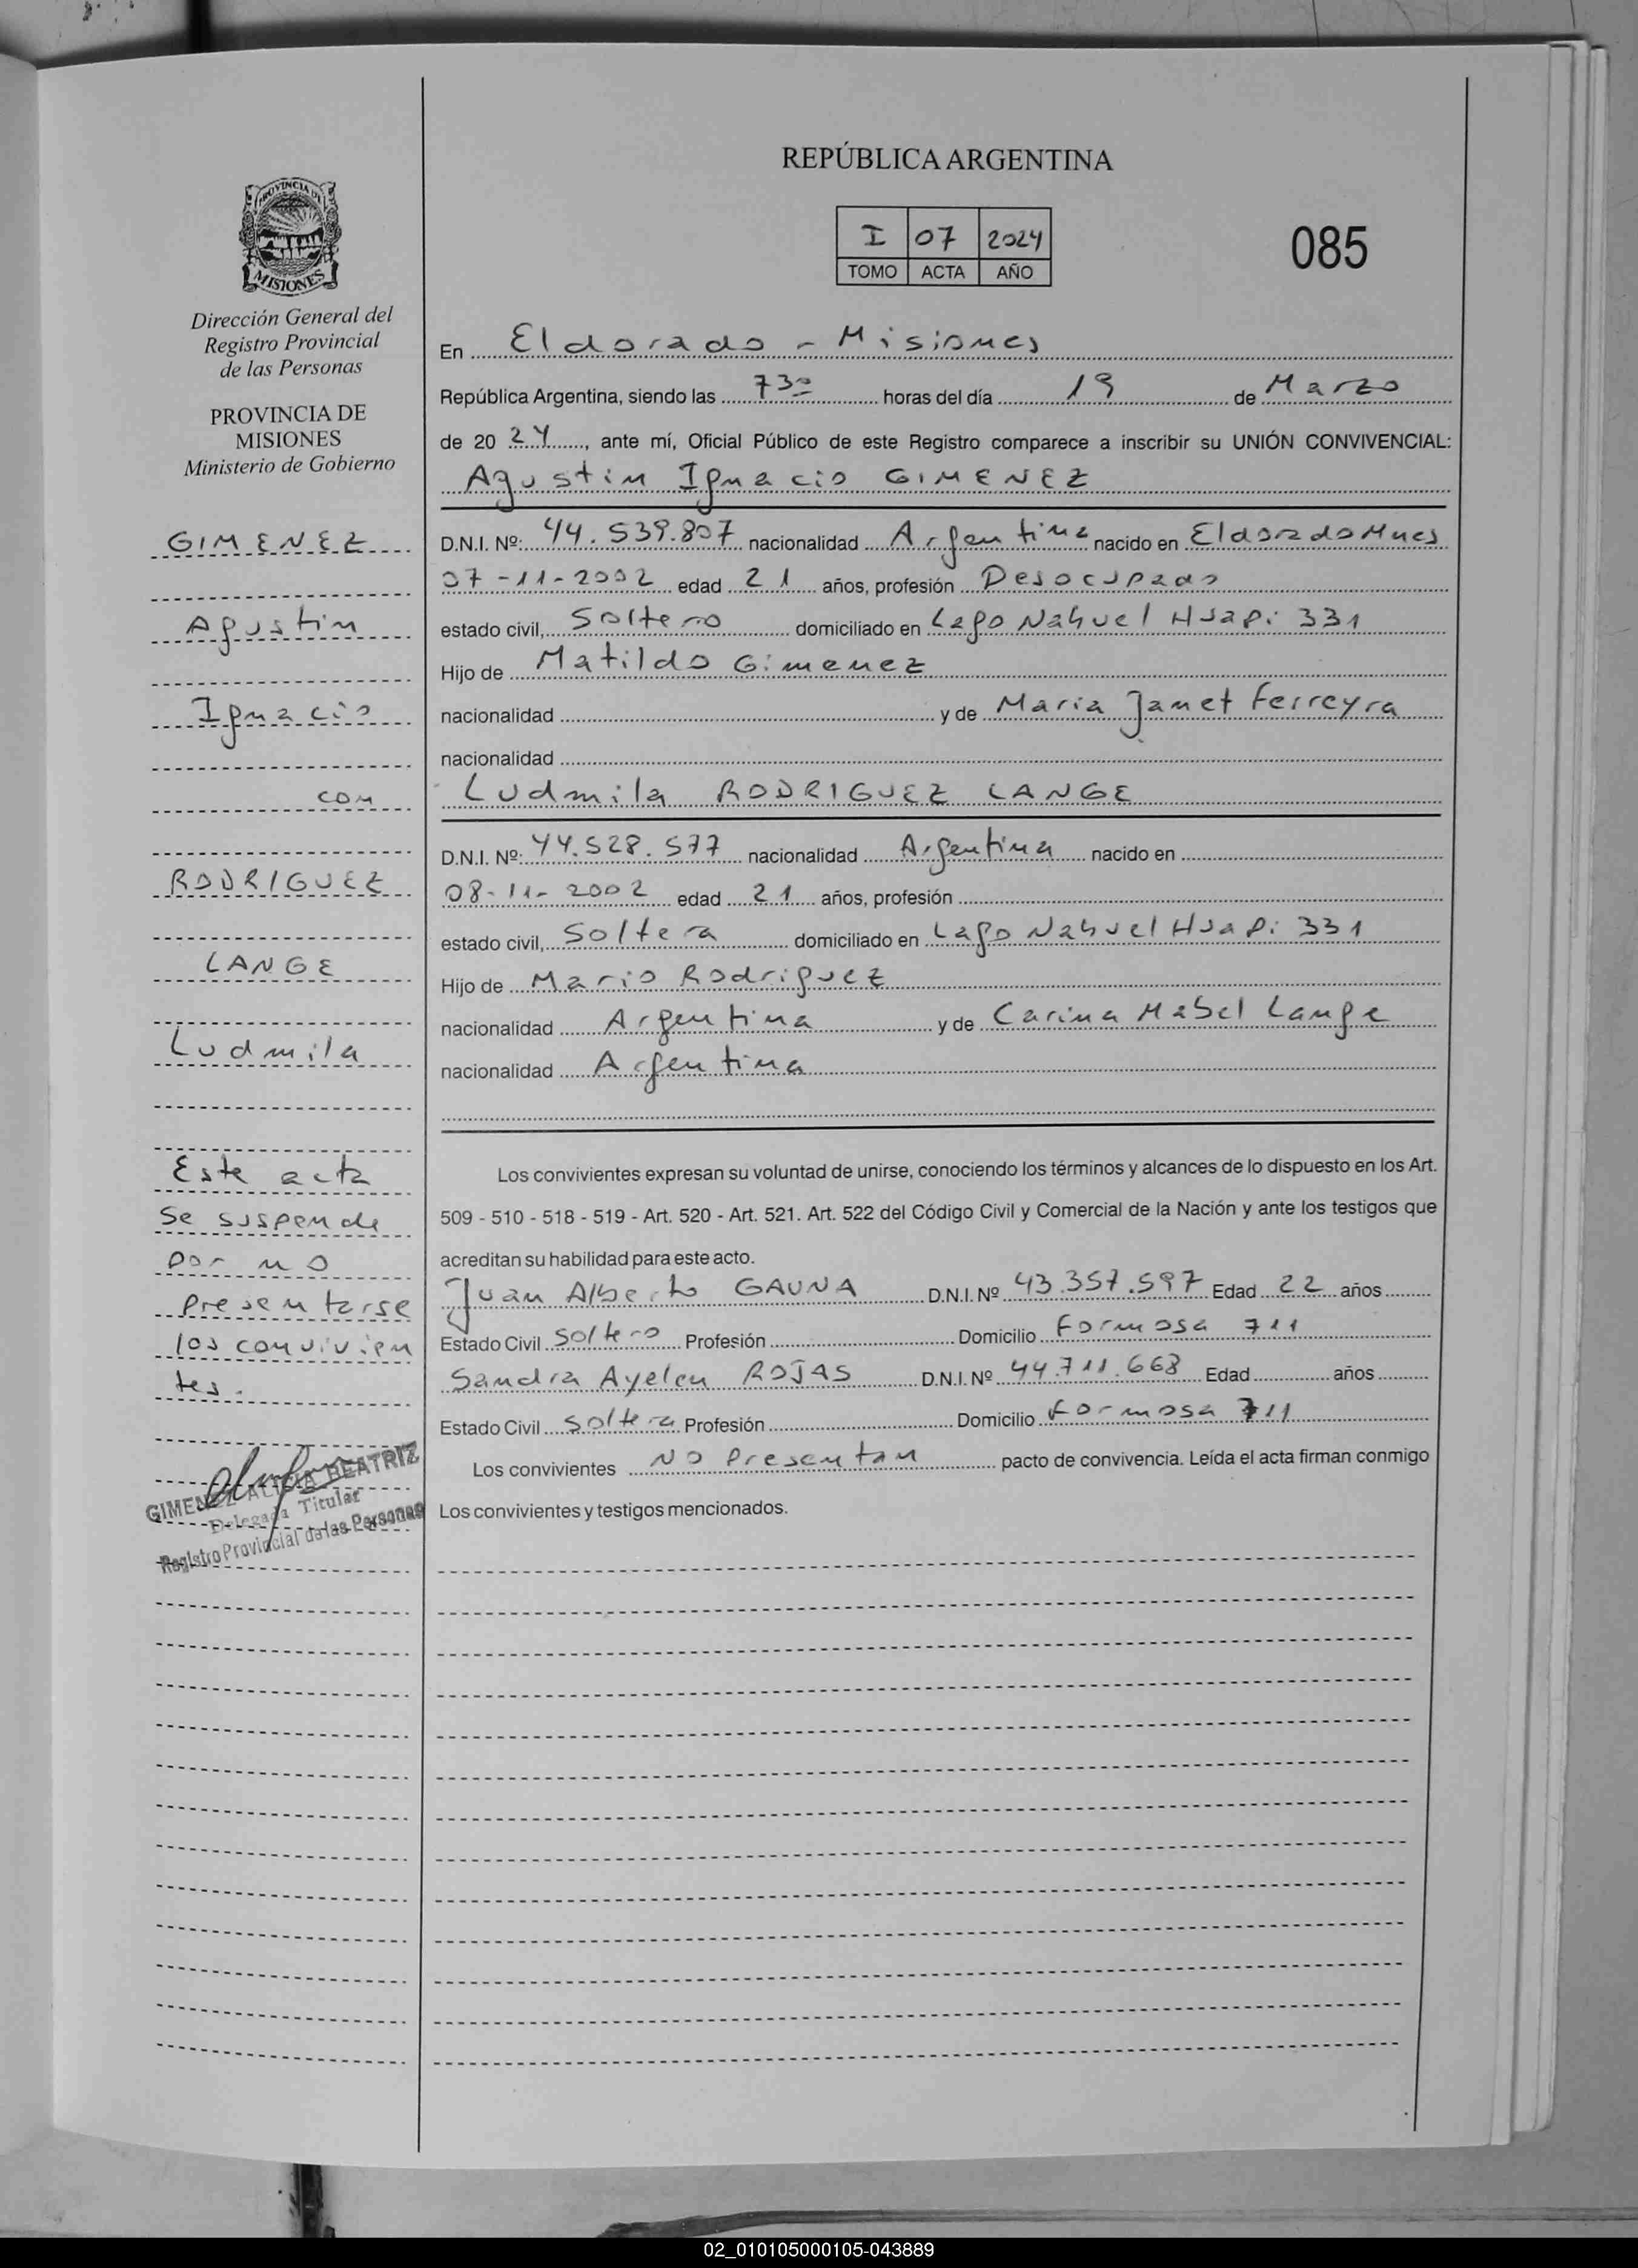 PROVINCIA DE
MISIONES
Dirección General del
Registro Provincial
de las Personas
PROVINCIA DE
MISIONES
Ministerio de Gobierno
GIMENEZ
Agustin
Ignacio
con
RODRIGUEZ
LANGE
Ludmila
Este acta
se suspende
por no
presentarse
los convivien
tes.
GIMENEZ ALICIA BEATRIZ
Delegada Titular
Registro Provincial de las Personas
REPÚBLICA ARGENTINA
I 07 2024
TOMO ACTA AÑO
085
En Eldorado - Misiones
República Argentina, siendo las 730 horas del día 19 de Marzo
de 20 24, ante mí, Oficial Público de este Registro comparece a inscribir su UNIÓN CONVIVENCIAL:
Agustin Ignacio GIMENEZ
D.N.I. Nº: 44.539.807 nacionalidad Argentina nacido en Eldorado Mnes
07-11-2002 edad 21 años, profesión Desocupado
estado civil, Soltero domiciliado en Lago Nahuel Huapi 331
Hijo de Matildo Gimenez
nacionalidad y de Maria Janet Ferreyra
nacionalidad
Ludmila RODRIGUEZ LANGE
D.N.I. Nº: 44.528.577 nacionalidad Argentina nacido en
08-11-2002 edad 21 años, profesión
estado civil, Soltera domiciliado en Lago Nahuel Huapi 331
Hijo de Mario Rodriguez
nacionalidad Argentina y de Carina Mabel Lange
nacionalidad Argentina
Los convivientes expresan su voluntad de unirse, conociendo los términos y alcances de lo dispuesto en los Art.
509 - 510 - 518 - 519 - Art. 520 - Art. 521. Art. 522 del Código Civil y Comercial de la Nación y ante los testigos que
acreditan su habilidad para este acto.
Juan Alberto GAUNA D.N.I. Nº 43.357.597 Edad 22 años
Estado Civil Soltero Profesión Domicilio Formosa 711
Sandra Ayelen ROJAS D.N.I. Nº 44.711.668 Edad años
Estado Civil Soltera Profesión Domicilio Formosa 711
Los convivientes NO Presentan pacto de convivencia. Leída el acta firman conmigo
Los convivientes y testigos mencionados.
02_010105000105-043889